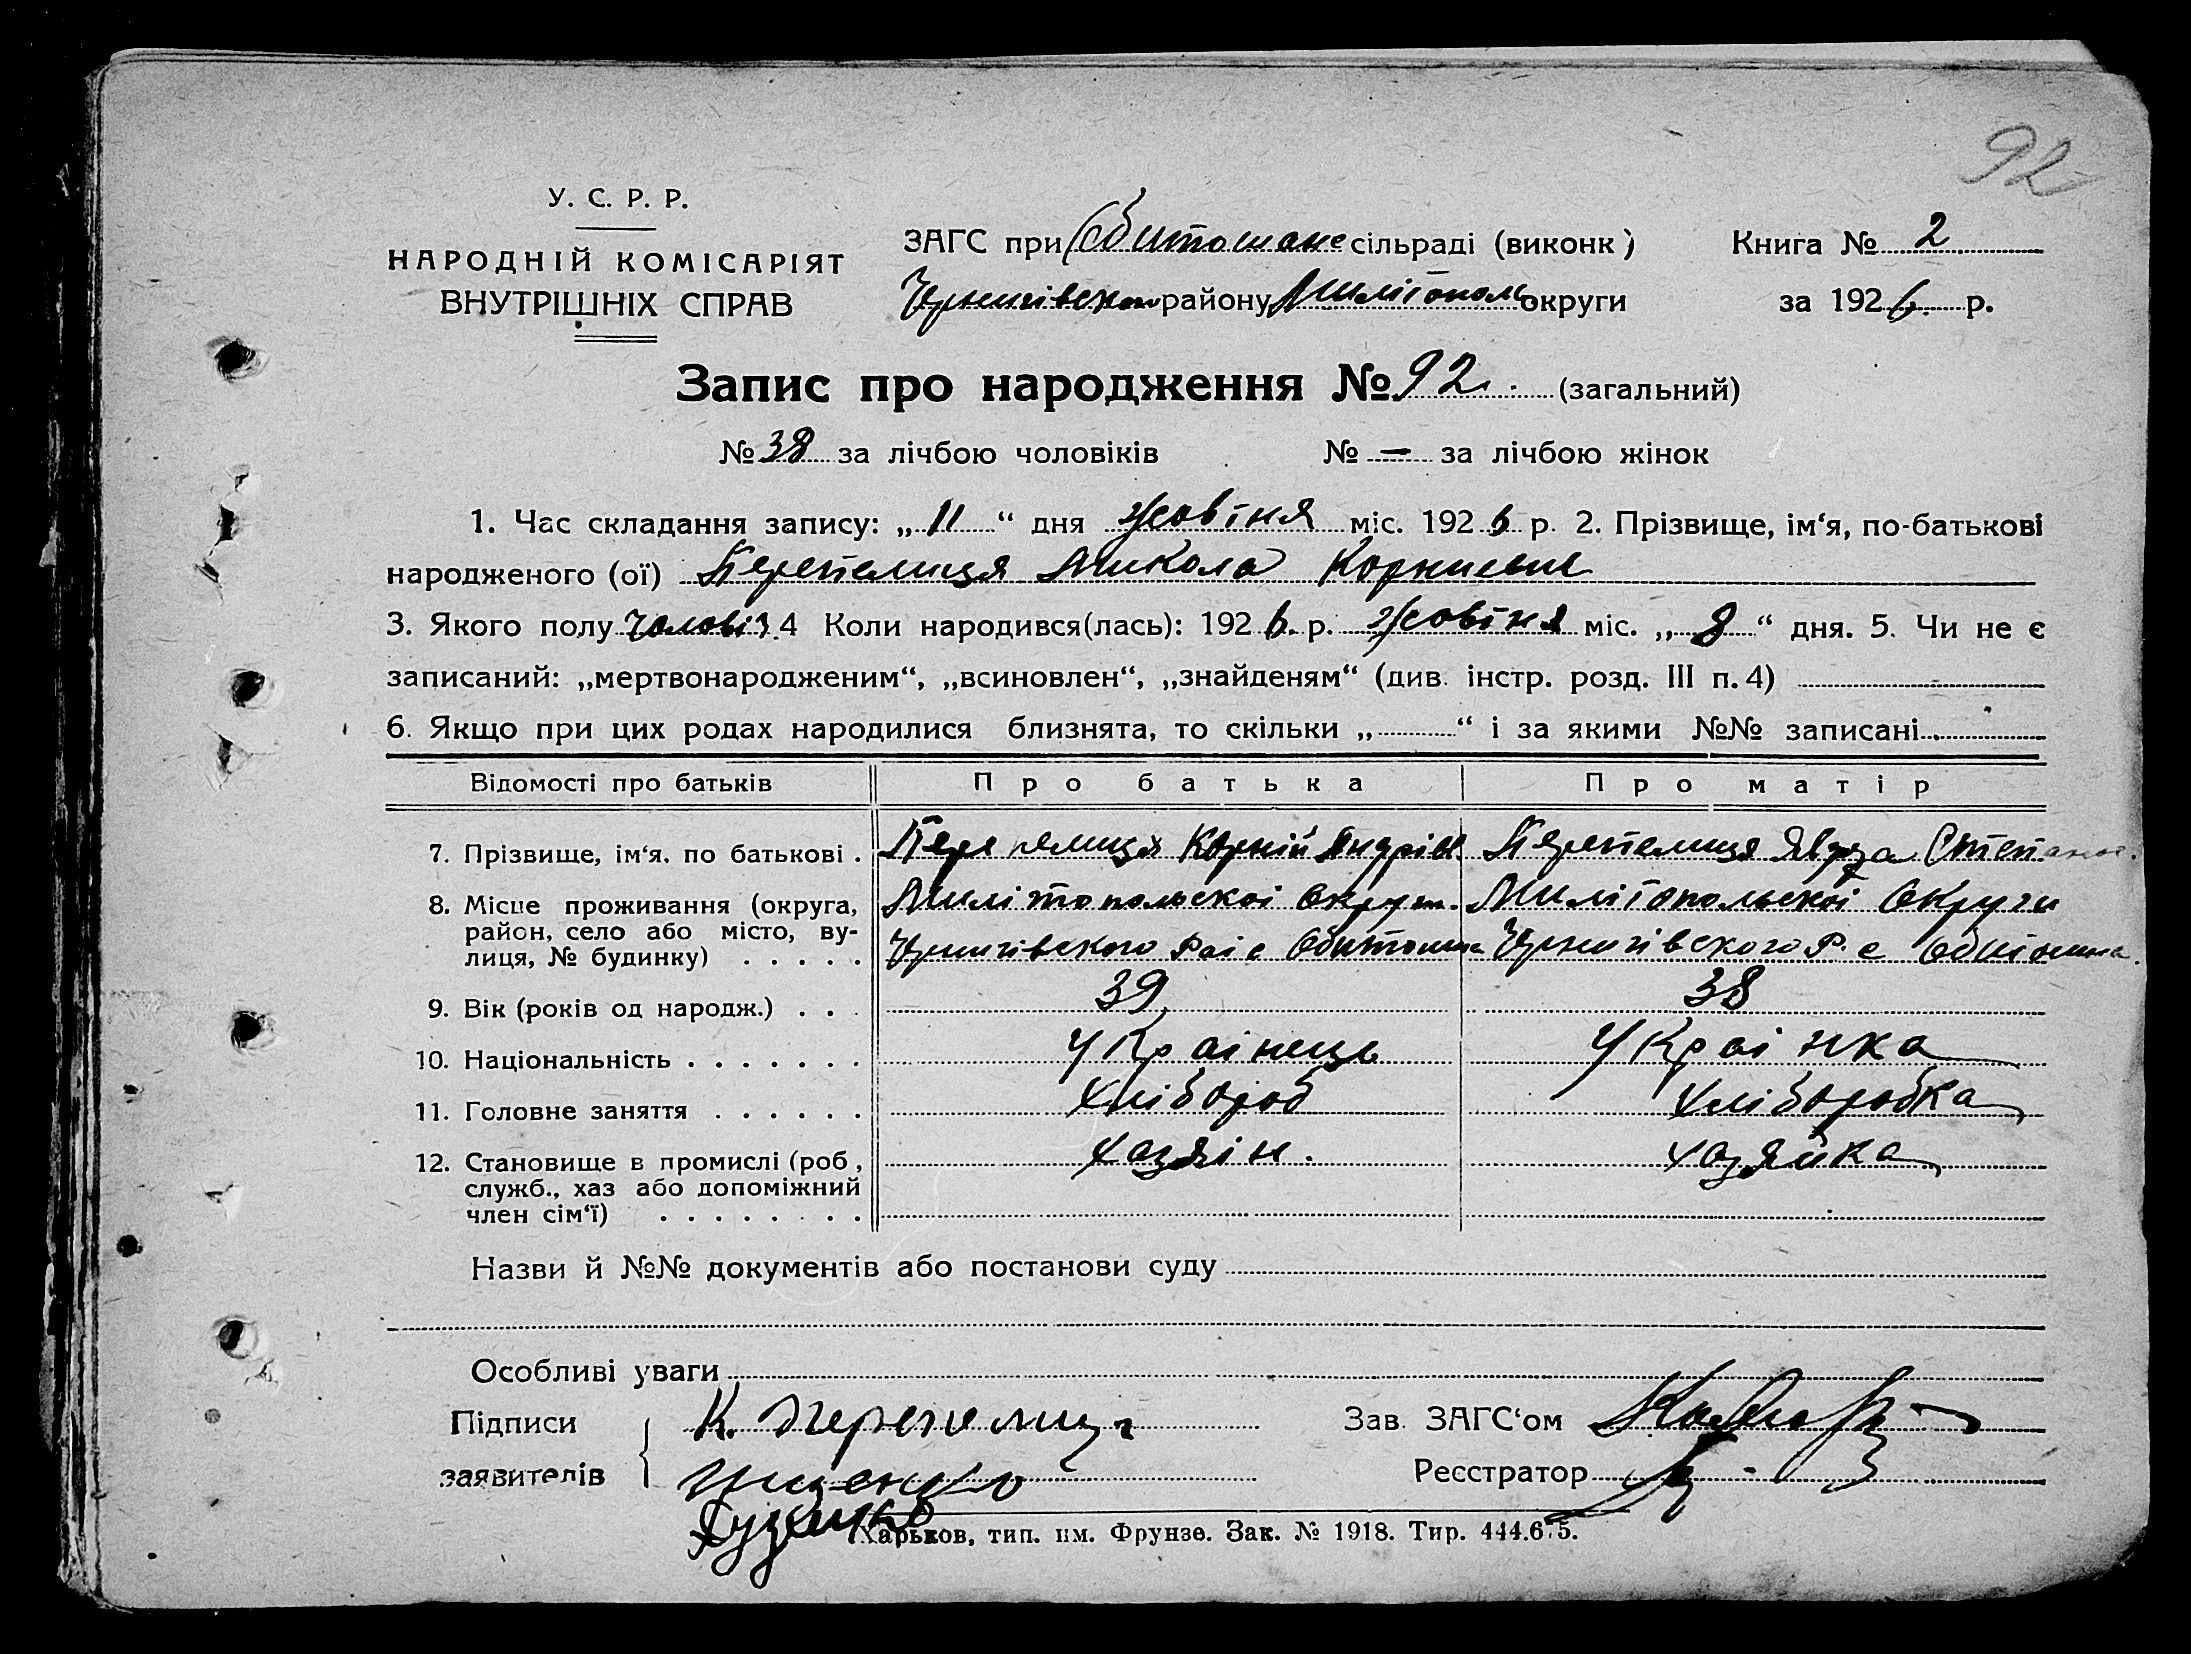 92
У. С. Р. Р.
НАРОДНІЙ КОМІСАРІЯТ
ВНУТРІШНІХ СПРАВ
ЗАГС при Обиточане сільраді (виконк)
Книга № 2
Чернигівского району Милітополь округи
за 1926 р.
Запис про народження № 92. (загальний)
№ 38 за лічбою чоловіків № — за лічбою жінок
1. Час складання запису: „11“ дня жовтня міс. 1926 р. 2. Прізвище, ім‘я, по-батькові
народженого (ої) Перепелиця Микола Корниевич
3. Якого полу чолові 4 Коли народився(лась): 1926 р. жовтня міс. „8“ дня. 5. Чи не є
записаний: „мертвонародженим“, „всиновлен“, „знайденям“ (див. інстр. розд. III п. 4)
6. Якщо при цих родах народилися близнята, то скільки „ “ і за якими №№ записані
Відомості про батьків Про батька Про матір
7. Прізвище, ім‘я, по батькові . Перепелиця Корній Андрієв. Перепелиця Степанов.
8. Місце проживання (округа, Милітопольскої Округи. Милітопольскої Округи
район, село або місто, ву-
лиця, № будинку) . . . . . Чернигівского Рай с Обиточна Чернигівского Р. с Обиточна.
9. Вік (років од народж.) . . . 39 38
10. Національність . . . . . . . Українець Українка
11. Головне заняття . . . . . . Хлібороб Хліборобка
12. Становище в промислі (роб, Хазяін. Хазяйка
служб., хаз або допоміжний
член сім‘ї) . . . . . . . .
Назви й №№ документів або постанови суду
Особливі уваги
Підписи К. Перепелиця Зав. ЗАГС‘ом
заявителів Ищенко Реєстратор
Харьков, тип. им. Фрунзе. Зак. № 1918. Тир. 444.675.